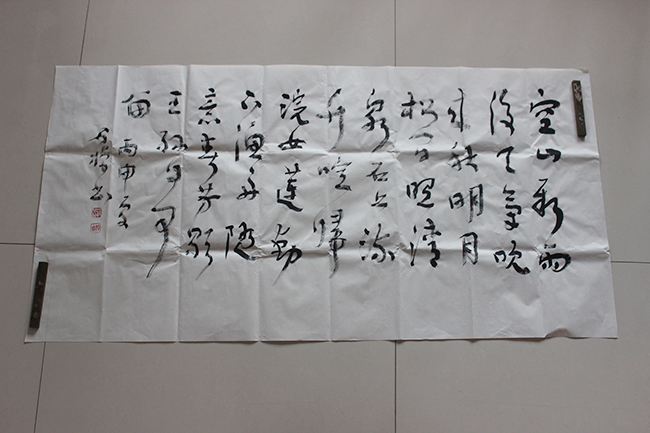 空山新雨
後天氣晚
來秋明月
松间照清
泉石上流
竹喧歸
浣女蓮動
下漁舟隨
意春芳歇
王孫自可
留
丙申
书